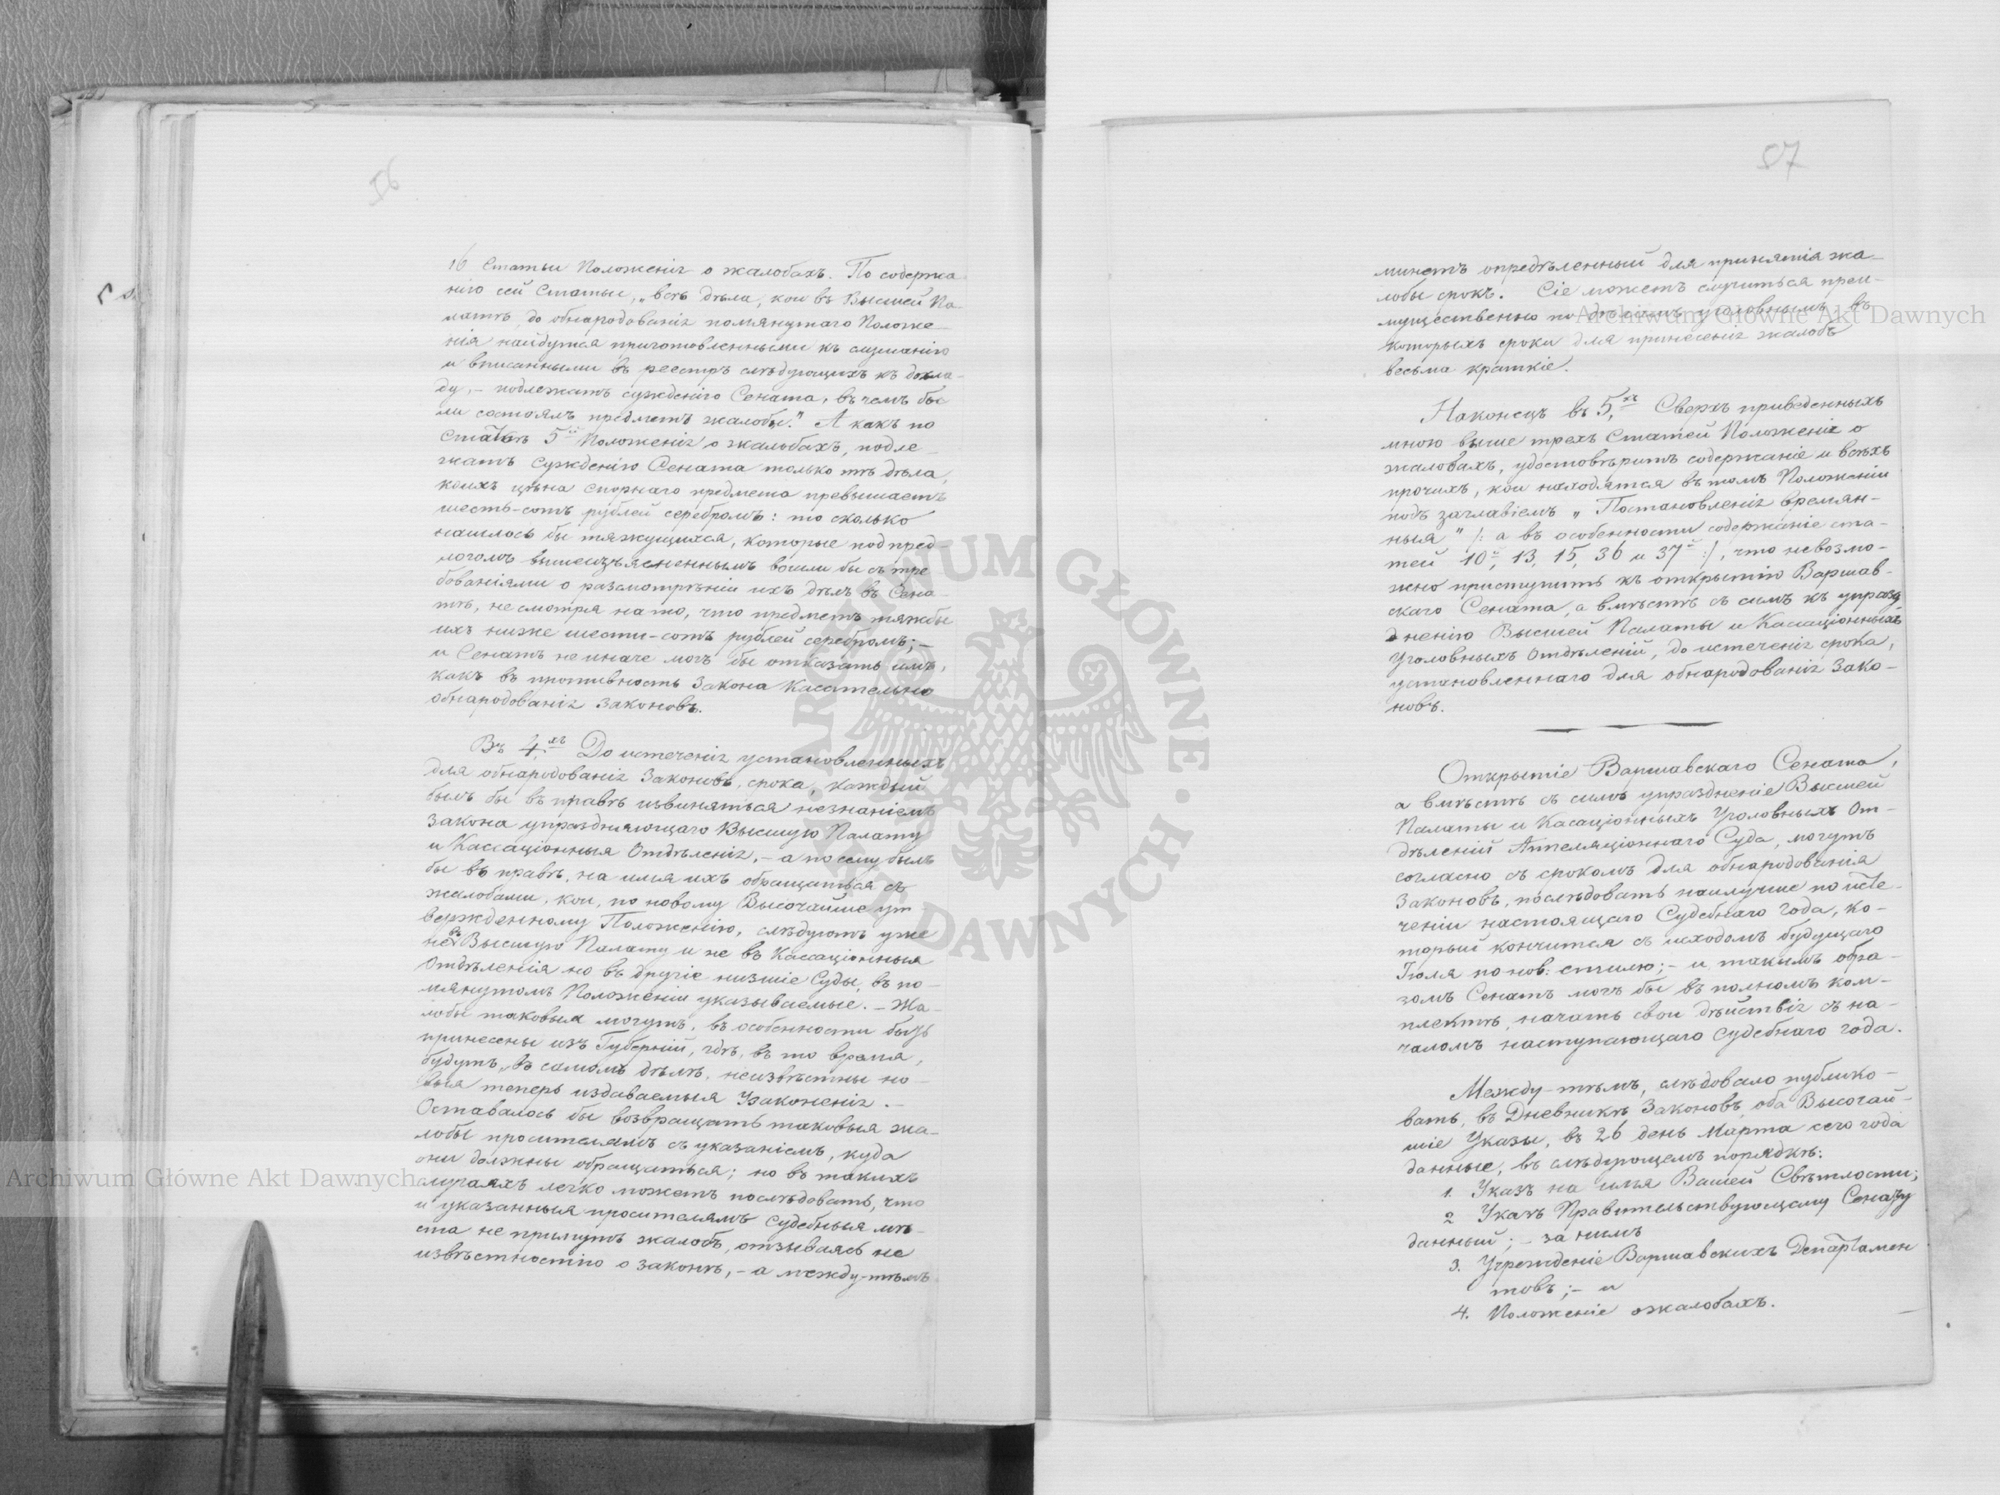 56
16 Статьи Положенія о жалобахъ. По содержа
нію сей Статьи, „всѣ дѣла, кои въ Высшей Па
латѣ, до обнародованія помянутаго Положе-
нія найдутся приготовленными къ слушанію
и вписанными въ реестръ слѣдующихъ къ докла-
ду, - подлежатъ сужденію Сената, въ чемъ бы
ни состоялъ предметъ жалобы." А какъ по
Статьѣ 5й Положенія о жалобахъ, подле-
жатъ сужденію Сената только тѣ дѣла,
коихъ цѣна спорнаго предмета превышаетъ
шесть-сотъ рублей серебромъ: то сколько
нашлось бы тяжущихся, которые подъ пред
логомъ вышеизъясненнымъ вошли бы съ тре
бованіями о разсмотрѣніи ихъ дѣлъ въ Сена-
тѣ, не смотря на то, что предметъ тяжбы
ихъ ниже шести-сотъ рублей серебромъ; -
и Сенатъ не иначе могъ бы отказать имъ,
какъ въ противность Закона касательно
обнародованія Законовъ.
Въ 4.хъ До истеченія установленныхъ
для обнародованія Законовъ, срока, каждый
былъ бы въ правѣ извиняться незнаніемъ
Закона упраздняющаго Высшую Палату
и Кассаціонныя Отдѣленія, - а по сему былъ
бы въ правѣ, на имя ихъ обращаться съ
жалобами, кои, по новому Высочайше ут
вержденному Положенію, слѣдуютъ уже
не въ Высшую Палату и не въ Кассаціонныя
Отдѣленія но въ другіе низшіе Суды, въ по-
мянутомъ Положеніи указываемые. - Жа-
лобы таковыя могутъ, въ особенности быть
принесены изъ Губерній, гдѣ, въ то время,
будутъ, въ самомъ дѣлѣ, неизвѣстны но-
выя теперь издаваемыя Узаконенія. -
Оставалось бы возвращать таковыя жа-
лобы просителямъ съ указаніемъ, куда
они должны обращаться; но въ такихъ
случаяхъ легко можетъ послѣдовать, что
и указанныя просителямъ Судебныя мѣ-
ста не примутъ жалобъ, отзываясь не
извѣстностію о законѣ, - а между-тѣмъ
57
минетъ опредѣленный для принятія жа-
лобы срокъ. Сіе можетъ случиться преи-
мущественно по дѣламъ уголовнымъ, въ
которыхъ сроки для принесенія жалобъ
весьма краткіе.
Наконецъ въ 5.хъ Сверхъ приведенныхъ
мною выше трехъ Статей Положенія о
жалобахъ, удостовѣритъ содержаніе и всѣхъ
прочихъ, кои находятся въ томъ Положеніи
подъ заглавіемъ „Постановленія времян-
ныя" /: а въ особенности содержаніе ста-
тей 10й, 13, 15, 36 и 37й :/, что невозмо-
жно приступить къ открытію Варшав-
скаго Сената, а вмѣстѣ съ симъ къ упразд
дненію Высшей Палаты и Кассаціонныхъ
Уголовныхъ Отдѣленій, до истеченія срока,
установленнаго для обнародованія Зако-
новъ.
Открытіе Варшавскаго Сената,
а вмѣстѣ съ симъ упраздненіе Высшей
Палаты и Касаціонныхъ Уголовныхъ От-
дѣленій Аппеляціоннаго Суда, могутъ
согласно съ срокомъ для обнародованія
Законовъ, послѣдовать наилучше по исте-
ченіи настоящаго Судебнаго года, ко-
торый кончится съ исходомъ будущаго
Іюля по нов: стилю; - и такимъ обра-
зомъ Сенатъ могъ бы въ полномъ ком-
плектѣ, начать свои дѣйствія съ на-
чаломъ наступающаго Судебнаго года.
Между-тѣмъ, слѣдовало публико-
вать, въ Дневникѣ Законовъ, оба Высочай-
шіе Указы, въ 26 день Марта сего года
данные, въ слѣдующемъ порядкѣ:
1. Указъ на имя Вашей Свѣтлости;
2 Указъ Правительствующему Сенату
данный; - за нимъ
3. Учрежденіе Варшавскихъ Департамен
товъ; - и
4. Положеніе о жалобахъ.
Archiwum Główne Akt Dawnych
Archiwum Główne Akt Dawnych
ARCHIWUM GŁÓWNE AKT DAWNYCH